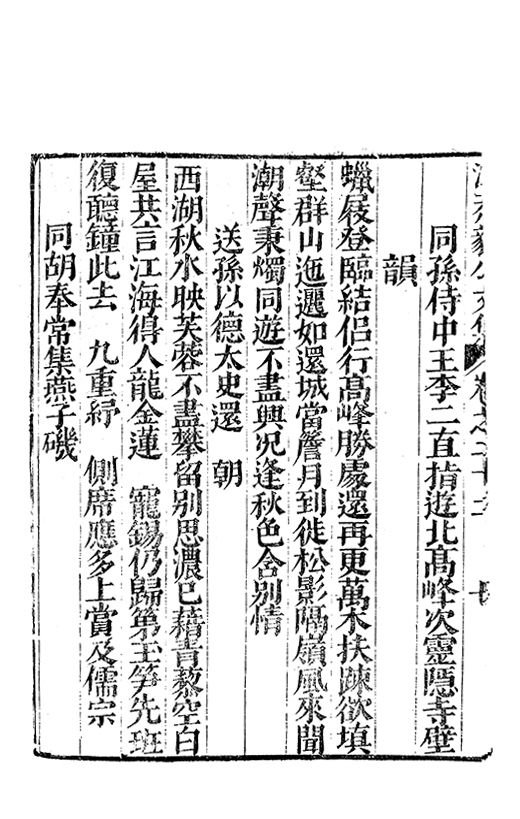 同孫侍中王李二直指遊北高峰次靈隱寺壁
韻
蠟屐登臨結侶行高峰勝處還再更萬木扶踈欲填
壑群山迤邐如還城當簷月到徙松影隔嶺風來聞
潮聲秉燭同遊不盡興況逢秋色含別情
送孫以德太史還　朝
西湖秋水映芙蓉不盡攀留別思濃已藉青藜空白
屋共言江海得人龍金蓮　寵錫仍歸第玉笋先班
復聽鐘此去　九重紆　側席應多上賞及儒宗
同胡奉常集燕子磯